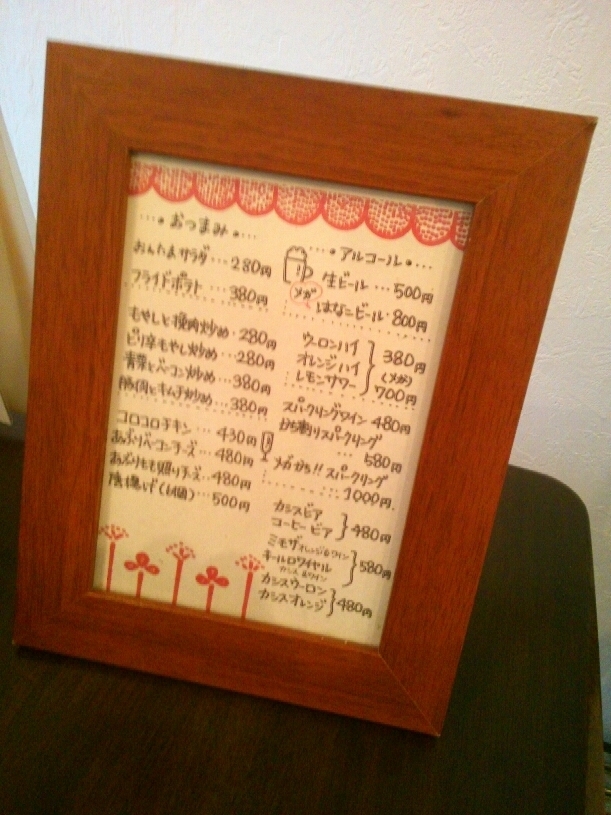 おつまみ
おんたまサラダ…280円
フライドポテト 380円
もやしと挽肉炒め…280円
ピリ辛もやし炒め…280円
青菜とベーコン炒め…380円
豚肉とキムチ炒め…380円
コロコロチキン…430円
あぶりベーコンチーズ…480円
あぶりもも照りチーズ…480円
唐揚げ(6個)…500円
アルコール
生ビール…500円
メガ はなこビール…800円
ウーロンハイ
オレンジハイ
レモンサワー
380円
(メガ)
700円
スパークリングワイン 480円
かち割りスパークリング
…580円
メガかち!!スパークリング
…1000円
カシスビア
コーヒービア
480円
ミモザ オレンジ&ワイン
キールロワイヤル
カシス&ワイン
580円
カシスウーロン
カシスオレンジ
480円